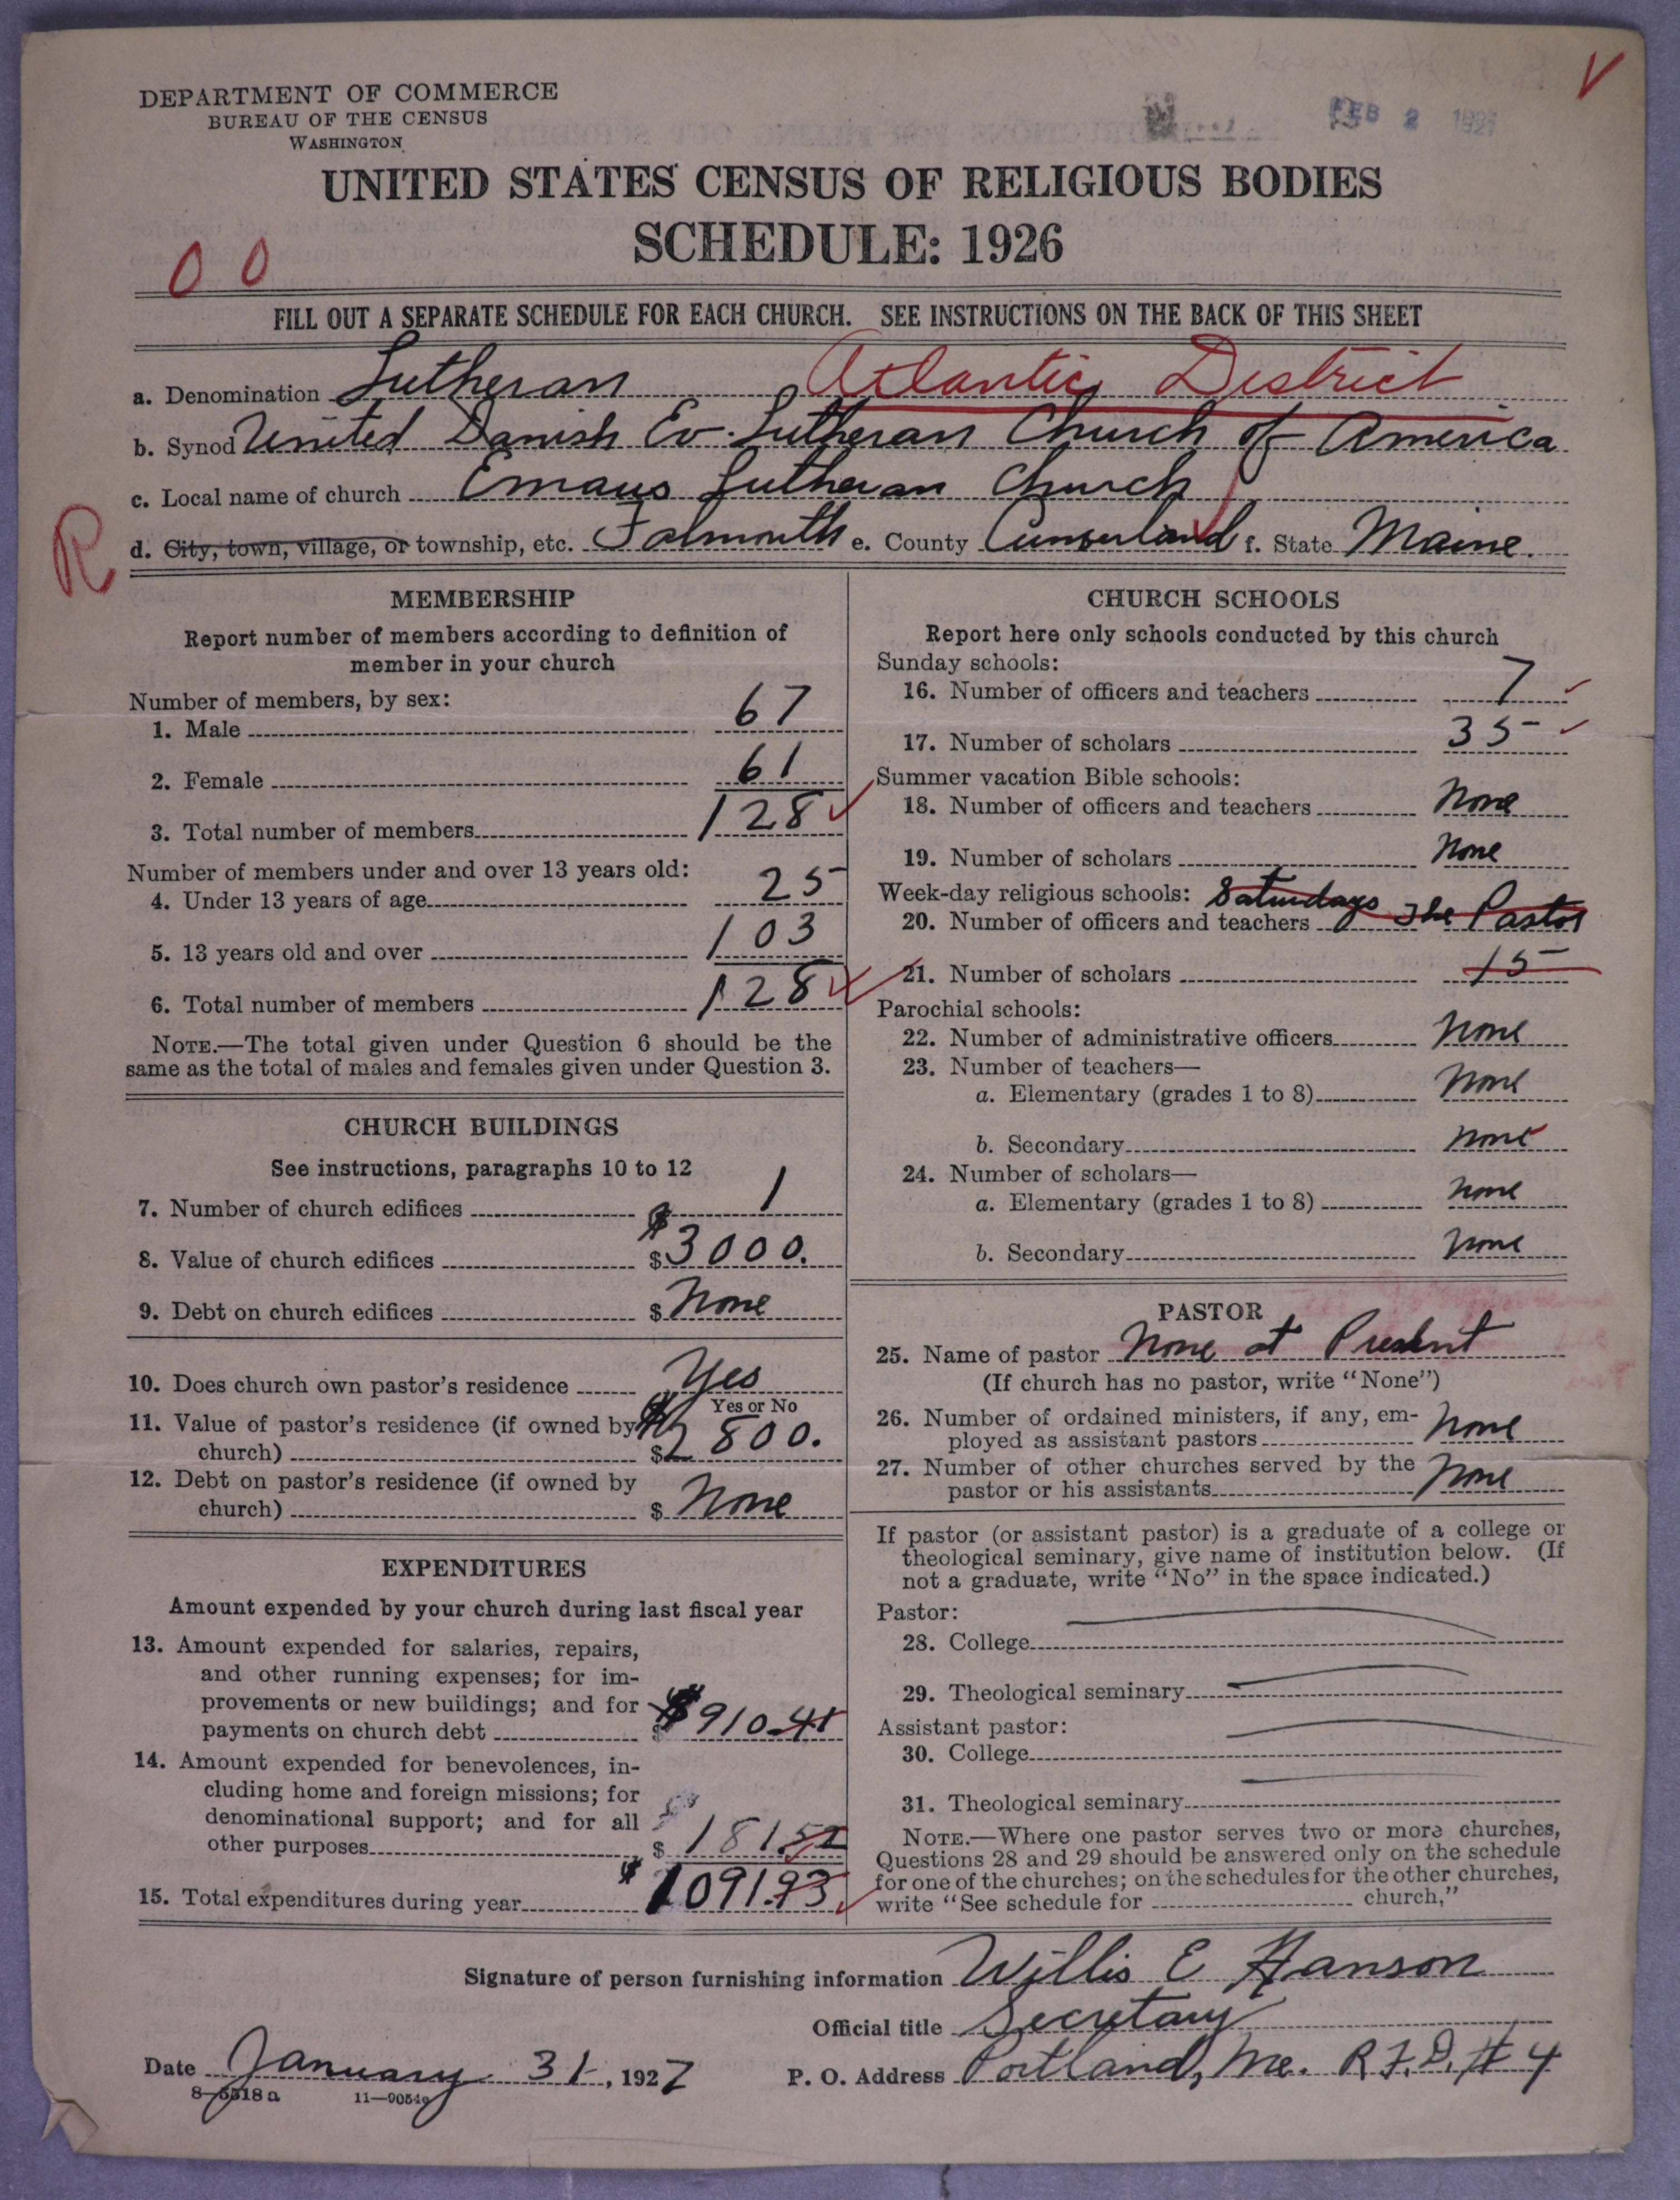 DEPARTMENT OF COMMERCE
BUREAU OF THE CENSUS
WASHINGTON
FEB 2 1927
UNITED STATES CENSUS OF RELIGIOUS BODIES
SCHEDULE: 1926
0 0
FILL OUT A SEPARATE SCHEDULE FOR EACH CHURCH. SEE INSTRUCTIONS ON THE BACK OF THIS SHEET
a. Denomination Lutheran Atlantic District
b. Synod United Danish Ev. Lutheran Church of America
c. Local name of church Emaus Lutheran Church
R
d. City, town, village, or township, etc. Falmouth e. County Cumberland f. State Maine.
MEMBERSHIP
Report number of members according to definition of
member in your church
Number of members, by sex:
1. Male 67
2. Female 61
3. Total number of members 128
Number of members under and over 13 years old:
4. Under 13 years of age 25
5. 13 years old and over 103
6. Total number of members 128
NOTE.—The total given under Question 6 should be the
same as the total of males and females given under Question 3.
CHURCH BUILDINGS
See instructions, paragraphs 10 to 12
7. Number of church edifices 1
8. Value of church edifices $3000.
9. Debt on church edifices $ None
10. Does church own pastor's residence Yes
Yes or No
11. Value of pastor's residence (if owned by
church) $2800.
12. Debt on pastor's residence (if owned by
church) $ None
EXPENDITURES
Amount expended by your church during last fiscal year
13. Amount expended for salaries, repairs,
and other running expenses; for im-
provements or new buildings; and for
payments on church debt $910.41
14. Amount expended for benevolences, in-
cluding home and foreign missions; for
denominational support; and for all
other purposes $ 181.52
15. Total expenditures during year $1091.93
CHURCH SCHOOLS
Report here only schools conducted by this church
Sunday schools:
16. Number of officers and teachers 7
17. Number of scholars 35
Summer vacation Bible schools:
18. Number of officers and teachers None
19. Number of scholars None
Week-day religious schools: Saturdays The Pastor
20. Number of officers and teachers
21. Number of scholars 15
Parochial schools:
22. Number of administrative officers None
23. Number of teachers—
a. Elementary (grades 1 to 8) None
b. Secondary None
24. Number of scholars—
a. Elementary (grades 1 to 8) None
b. Secondary None
PASTOR
25. Name of pastor None at Present
(If church has no pastor, write "None")
26. Number of ordained ministers, if any, em-
ployed as assistant pastors None
27. Number of other churches served by the
pastor or his assistants None
If pastor (or assistant pastor) is a graduate of a college or
theological seminary, give name of institution below. (If
not a graduate, write "No" in the space indicated.)
Pastor:
28. College
29. Theological seminary
Assistant pastor:
30. College
31. Theological seminary
NOTE.—Where one pastor serves two or more churches,
Questions 28 and 29 should be answered only on the schedule
for one of the churches; on the schedules for the other churches,
write "See schedule for church,"
Signature of person furnishing information Willis E Hanson
Official title Secretary
Date January 31, 1927 P. O. Address Portland, Me. R.F.D. #4
8-5518a 11-9054